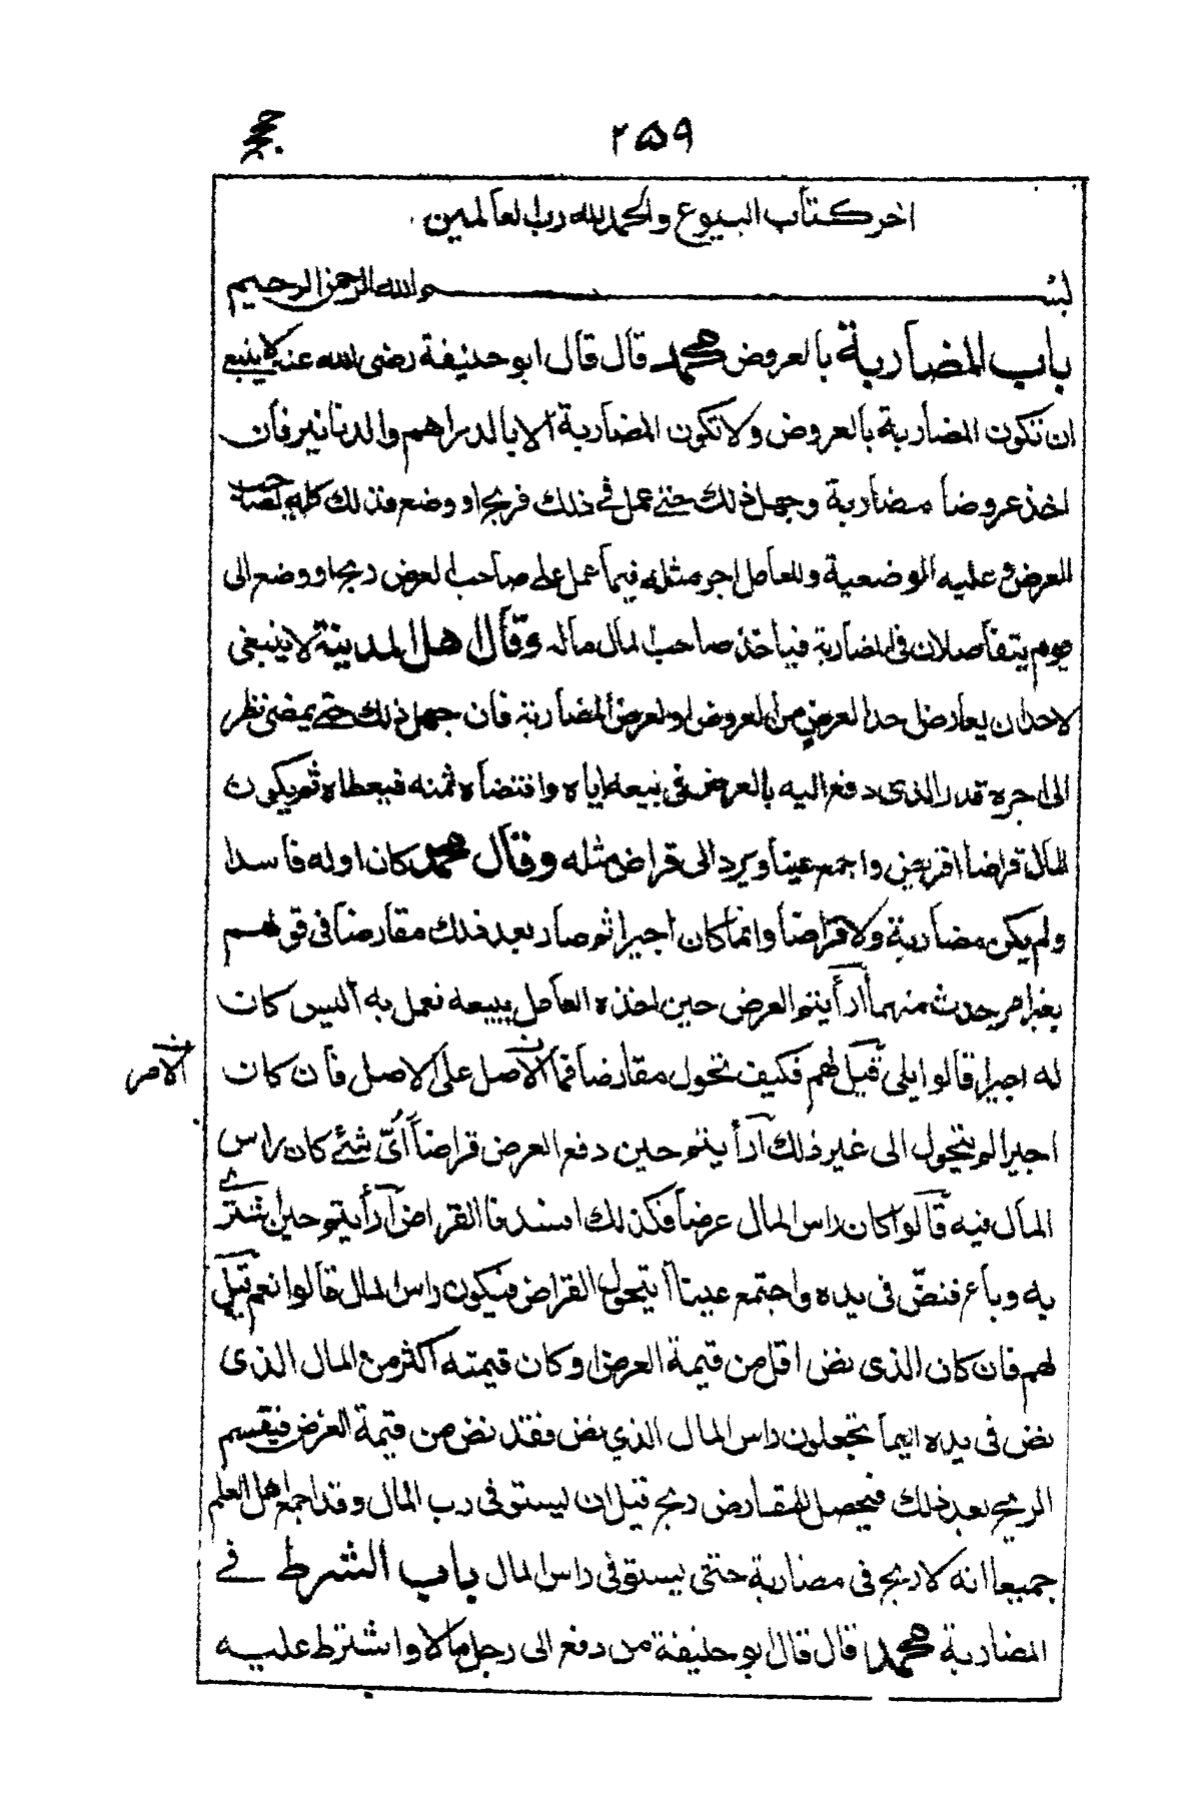 ۲۵۹
اخر كتاب البيوع والحمد لله رب العالمين
بسم الله الرحمن الرحيم
باب المضاربة بالعروض محمد قال قال ابو حنيفة رضى الله عنه لا ينبغي
ان تكون المضاربة بالعروض ولا تكون المضاربة الا بالدراهم والدنانير فان
اخذ عروضا مضاربة وجهل ذلك حتى عمل في ذلك فربح او وضع فذلك كله لصاحب
العرض وعليه الوضعية وللعامل اجر مثله فيما عمل على صاحب العرض ربح او وضع الى
يوم يتفاصلان في المضاربة فياخذ صاحب المال ماله وقال اهل المدينة لا ينبغي
لاحد ان يعارض احدا لعرض من العروض او لعرض المضاربة فان جهل ذلك حتى يمضى نظر
الى اجره قدر الذى دفع اليه بالعرض فى بيعه اياه واقتضاه ثمنه فيعطاه ثم يكون
المال قراضا واجتمع عينا ويرد الى قراض مثله وقال محمد كان اوله فاسدا
ولم يكن مضاربة ولا قراضا وانما كان اجيرا ثم صار بعد ذلك مقارضا فى قولهم
بغير امر يحدث منهما أرأيتم العرض حين اخذه العامل يبيعه نعمل به أليس كان
له اجيرا قالوا بلى قيل لهم فكيف تحول مقارضا فما الاصل على الاصل فان كان
الامر
اجيرا لم يتحول الى غير ذلك أرأيتم حين دفع العرض قراضا أىّ شئ كان راس
المال فيه قالوا كان راس المال عرضا فكذلك افسدنا القراض أرأيتم حين اشترى
به وباع فنضّ فى يده واجتمع عينا أيتحول القراض فيكون راس المال قالوا نعم قيل
لهم فان كان الذى نض اقل من قيمة العرض او كان قيمته اكثر من المال الذى
نض فى يده ايهما تجعلون راس المال الذي نض فقد نض من قيمة العرض فيقسم
الربح بعد ذلك فيحصل للمقارض ربح قبل ان يستوفى رب المال وقد اجمع اهل العلم
جميعا انه لا ربح فى مضاربة حتى يستوفى راس المال باب الشرط في
المضاربة محمد قال قال ابو حنيفة من دفع الى رجل مالا واشترط عليه